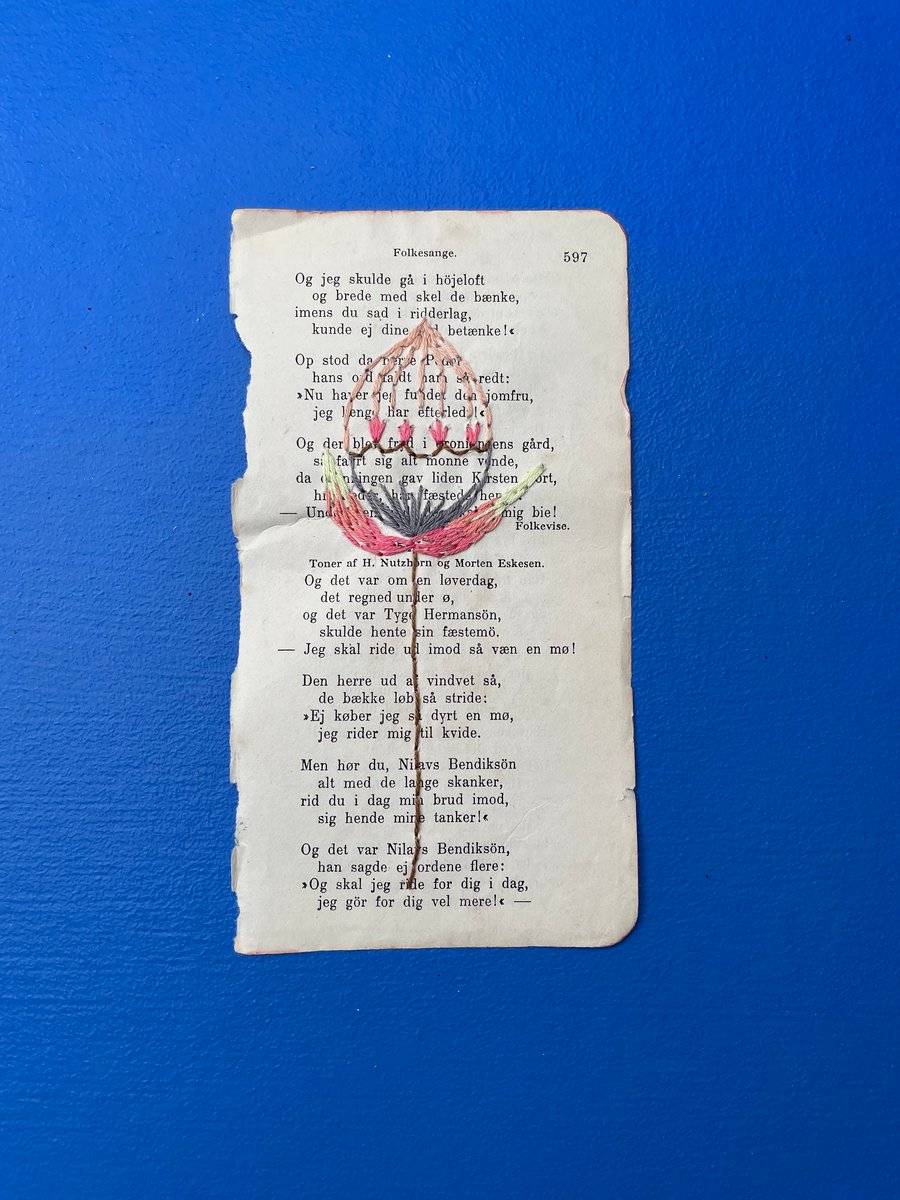 Folkesange.
597
Og jeg skulde gå i höjeloft
og brede med skel de bænke,
imens du sad i ridderlag,
kunde ej dine betænke!«
Op stod da herre Peder
hans ord faldt ham så redt:
»Nu haver jeg fundet den jomfru,
jeg længe har efterledt!«
Og der blev fryd i dronningens gård,
så fart sig alt monne vende,
da gav liden Kirsten bort,
han fæsted
mig bie!
Folkevise.
Toner af H. Nutzhorn og Morten Eskesen.
Og det var om en løverdag,
det regned under ø,
og det var Tyge Hermansön,
skulde hente sin fæstemö.
— Jeg skal ride ud imod så væn en mø!
Den herre ud af vindvet så,
de bække løb så stride:
»Ej køber jeg så dyrt en mø,
jeg rider mig til kvide.
Men hør du, Nilavs Bendiksön
alt med de lange skanker,
rid du i dag min brud imod,
sig hende mine tanker!«
Og det var Nilavs Bendiksön,
han sagde ej ordene flere:
»Og skal jeg ride for dig i dag,
jeg gör for dig vel mere!« —